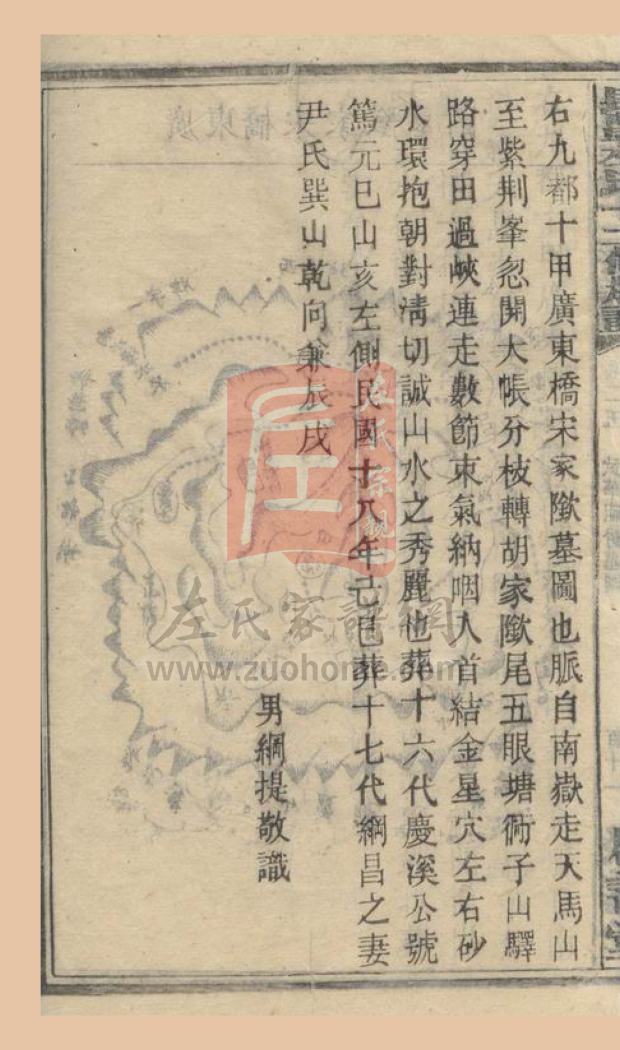 右九都十甲廣東橋宋家隞墓圖也脈自南嶽走天馬山
至紫荆峯忽開大帳分枝轉胡家隞尾五眼塘衕子山驛
路穿田過峽連走數節束氣納咽入首結金星穴左右砂
水環抱朝對淸切誠山水之秀麗也葬十六代慶溪公號
篤元巳山亥左側民國十八年己巳葬十七代綱昌之妻
尹氏巽山乾向兼辰戌
男綱提敬識
左氏宗親
左氏家譜網
www.zuohome.com